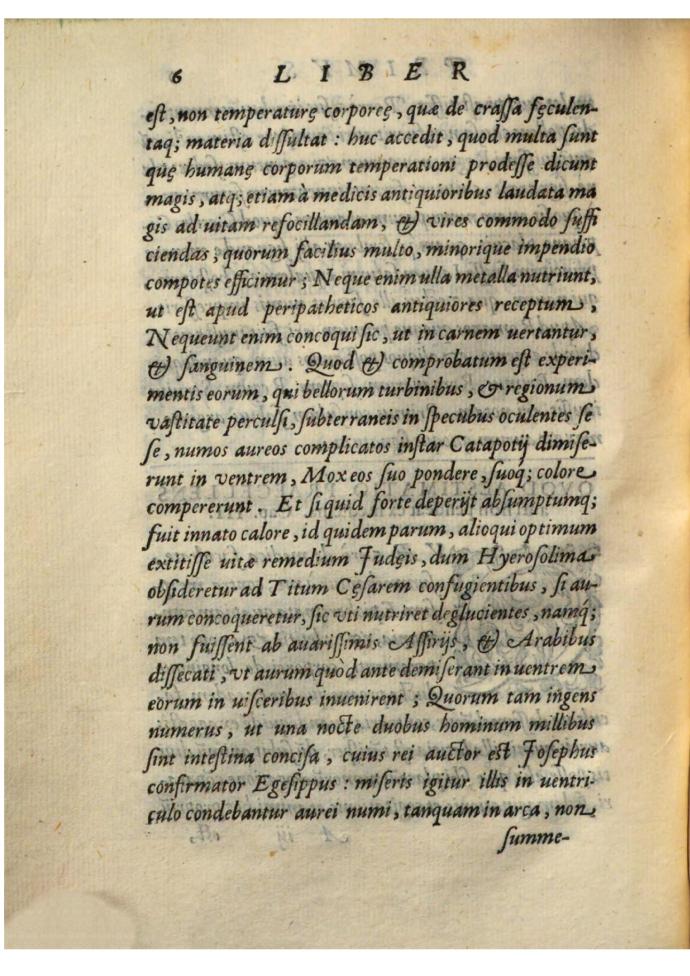 6 LIBER
est, non temperaturę corporeę, quæ de crassa fęculen-
taq; materia dissultat : huc accedit, quod multa sunt
quę humanę corporum temperationi prodesse dicunt
magis, atq; etiam à medicis antiquioribus laudata ma
gis ad uitam refocillandam, & vires commodo suffi
ciendas, quorum facilius multo, minorique impendio
compotes efficimur ; Neque enim ulla metalla nutriunt,
ut est apud peripatheticos antiquiores receptum,
Nequeunt enim concoqui sic, ut in carnem uertantur,
& sanguinem. Quod & comprobatum est experi-
mentis eorum, qui bellorum turbinibus, & regionum
vastitate perculsi, subterraneis in specubus oculentes se
se, numos aureos complicatos instar Catapotij dimise-
runt in ventrem, Mox eos suo pondere, suoq; colore
compererunt. Et si quid forte deperijt absumptumq;
fuit innato calore, id quidem parum, alioqui optimum
extitisse uitæ remedium Judęis, dum Hyerosolima
obsideretur ad Titum Cęsarem confugientibus, si au-
rum concoqueretur, sic vti nutriret deglucientes, namq;
non fuissent ab auarissimis Assirijs, & Arabibus
dissecati, vt aurum quòd ante demiserant in uentrem
eorum in uisceribus inuenirent ; Quorum tam ingens
numerus, ut una nocte duobus hominum millibus
sint intestina concisa, cuius rei auctor est Josephus
confirmator Egesippus : miseris igitur illis in uentri-
culo condebantur aurei numi, tanquam in arca, non
summe-